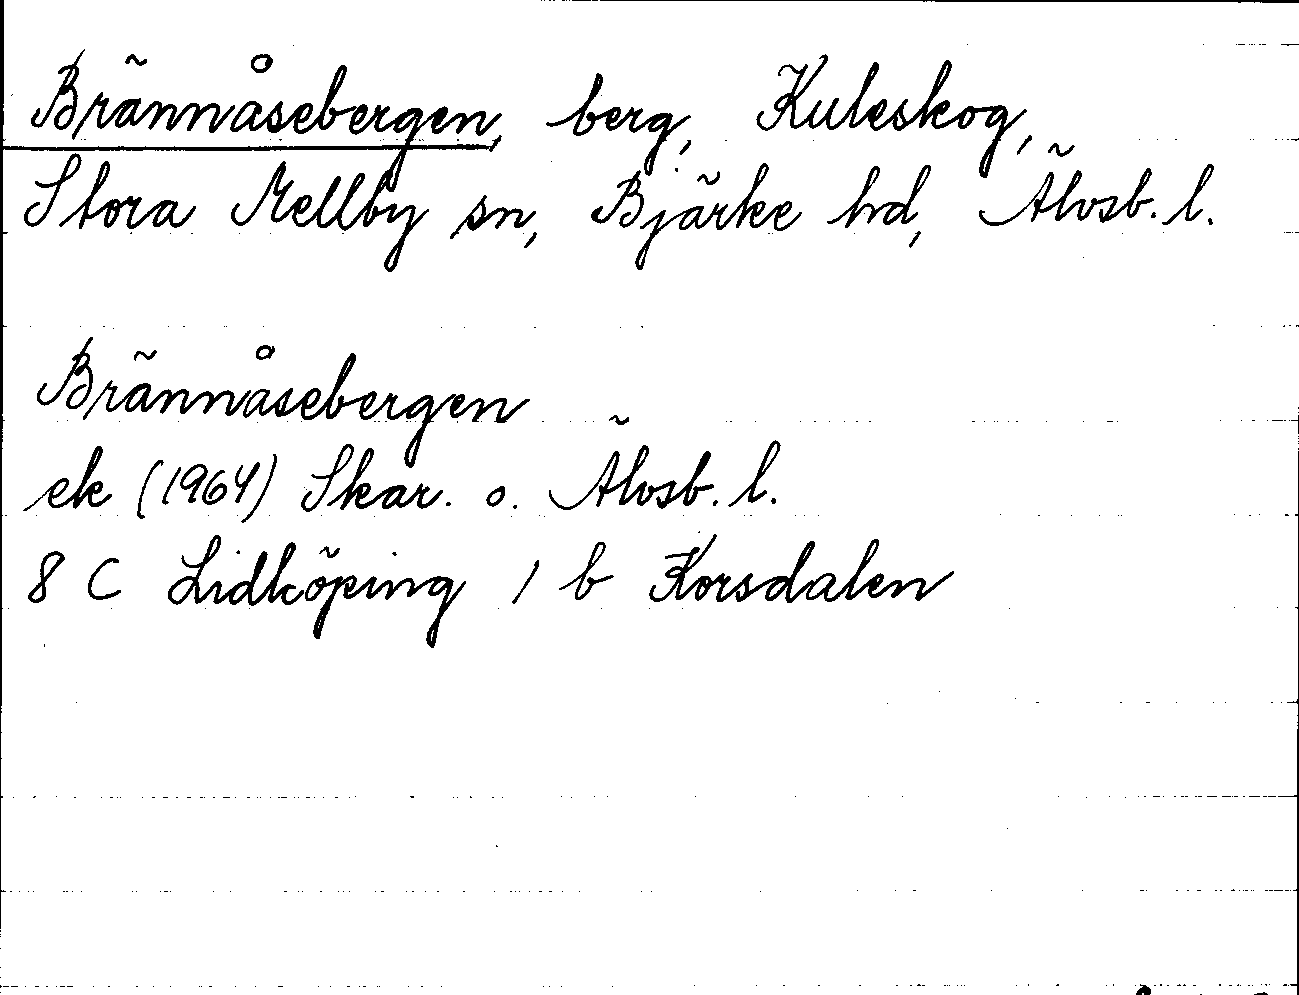 Brännåsebergen, berg, Kuleskog,
Stora Mellby sn, Bjärke hd, Älvsb. l.
Brännåsebergen
ek (1964) Skar. o. Älvsb. l.
8 C Lidköping 1 b Korsdalen